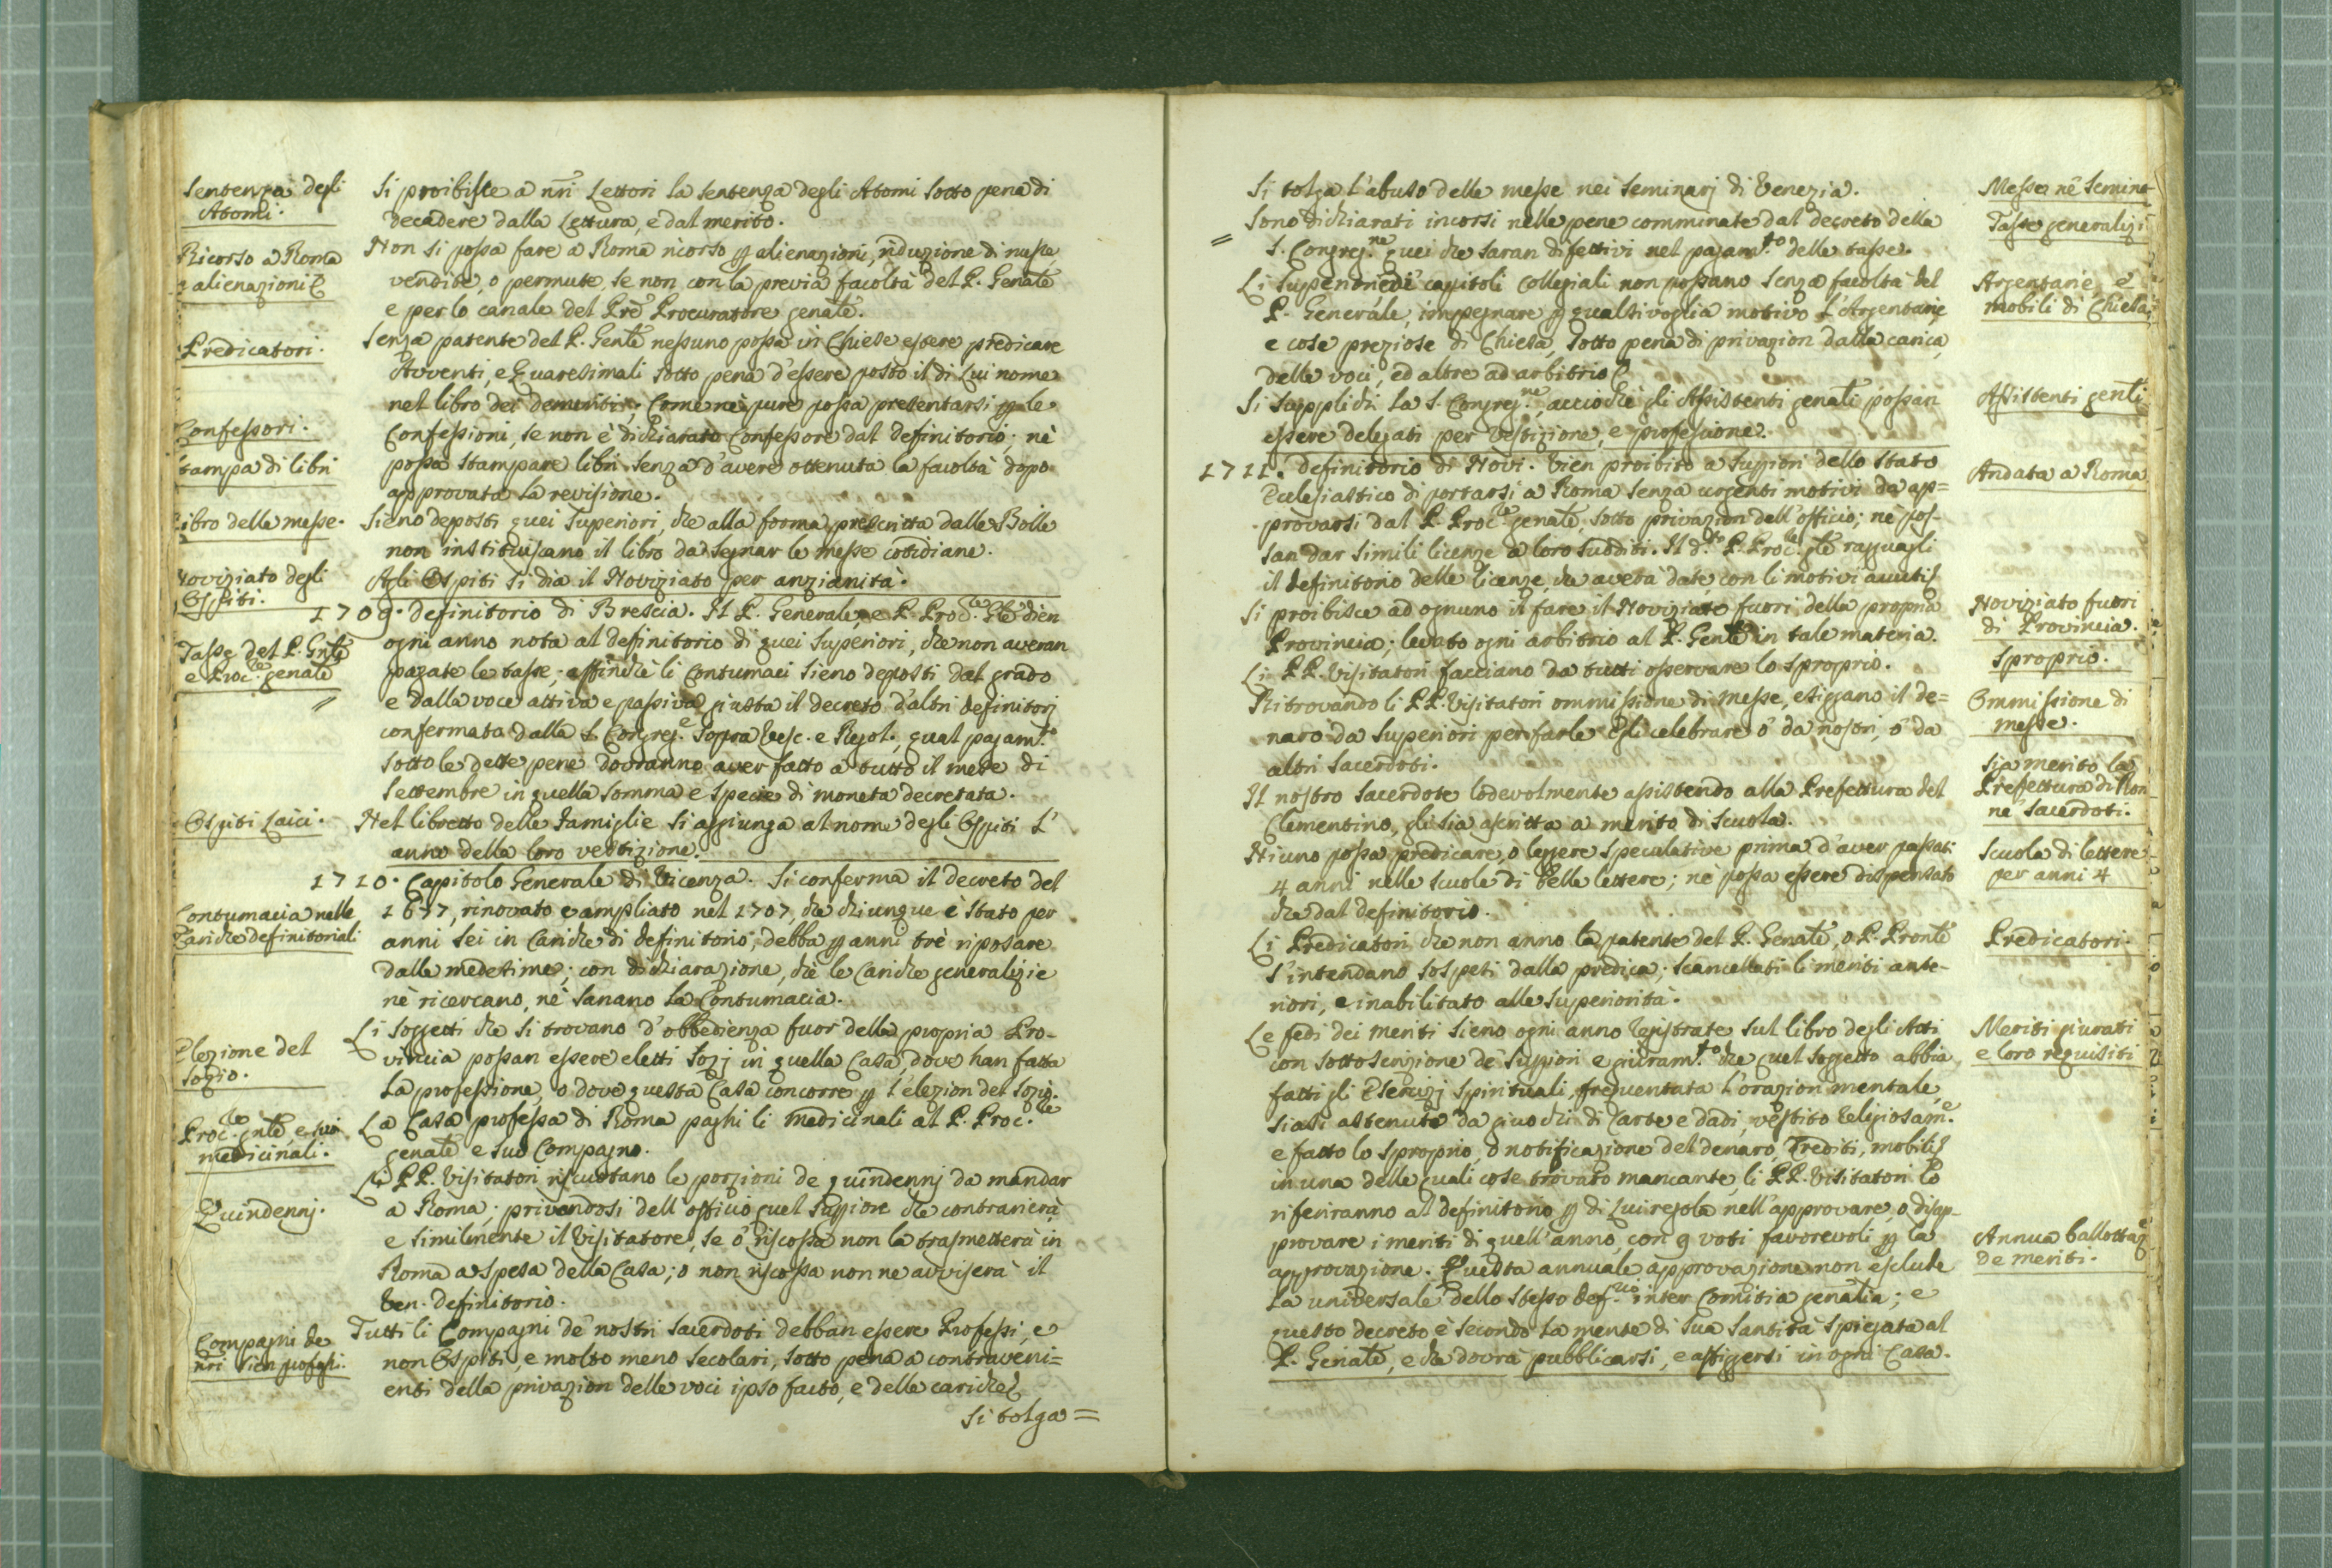 Sentenza degli
Atomi.
Si proibisce a nri Lettori la sentenza degli Atomi sotto pena di
decadere dalla Lettura, e dal merito.
Ricorso a Roma
alienazioni
Non si possa fare a Roma ricorso p alienazioni, riduzione di messe,
vendite, o permute, se non con la previa facoltà del P. Genale
e per lo canale del Pre Procuratore genale.
Predicatori.
Senza patente del P. Gente nessuno possa in Chiese essere predicare
Avventi, e Quaresimali sotto pena d'essere posto il di Lui nome
nel libro dei demeriti; Come nè pure possa presentarsi p le
Confessori.
Confessioni, se non è dichiarato Confessore dal definitorio; nè
stampa di libri
possa stampare libri senza d'avere ottenuta la facoltà dopo
approvata la revisione.
Libro delle messe.
Sieno deposti quei Superiori, che alla forma prescritta dalle Bolle
non instituiscano il libro da segnar le messe cotidiane.
Noviziato degli
Ospiti.
Agli Ospiti si dia il Noviziato per anzianità.
1709. definitorio di Brescia. Il P. Generale, e P. Procle Gle dien
Tasse del P. Gnle
e Procle genale
ogni anno nota al definitorio di quei Superiori, che non averan
pagate le tasse; affinchè li Contumaci sieno deposti dal grado
e dalla voce attiva e passiva giusta il decreto d'altri definitorj
confermata dalla S. Congrege sopra Vesc. e Regol., qual pagamto
sotto le dette pene dovranno aver fatto a tutto il mese di
Settembre in quella somma e specie di moneta decretata.
Ospiti Laici.
Nel libretto delle famiglie si aggiunga al nome degli Ospiti l'
anno della loro vestizione.
1710. Capitolo Generale di Vicenza. Si conferma il decreto del
Contumacia nelle
Cariche definitoriali
1677, rinovato e ampliato nel 1707, che chiunque è stato per
anni sei in Cariche di definitorio, debba p anni trè riposare
dalle medesime; con dichiarazione, chè le Cariche generalizie
nè ricercano, nè sanano la Contumacia.
Elezione del
Sozio.
Li Soggetti che si trovano d'obbedienza fuor della propria Pro-
vincia possan essere eletti Sozj in quella Casa, dove han fatta
la professione, o dove questa Casa concorre p l'elezion del Sozio.
Procle gnle, e suoi
medicinali.
La Casa professa di Roma paghi li medicinali al P. Procle
genale e suo Compagno.
Quindennj.
Li PP. Visitatori riscuotano le porzioni de quindennj da mandar
a Roma; privandosi dell'officio quel Supiore che contrarierà,
e similmente il Visitatore, se o riscossa non la trasmetterà in
Roma a spesa della Casa; o non riscossa non ne avviserà il
Ven. definitorio.
Compagni de
nri sien professi.
Tutti li Compagni de' nostri Sacerdoti debban essere Professi, e
non Ospiti e molto meno secolari, sotto pena a contraveni=
enti della privazion delle voci ipso facto, e delle cariche
Si tolga=
Si tolga l'abuso delle messe nei Seminarj di Venezia.
Messe nè Semina
Sono dichiarati incorsi nelle pene comminate dal decreto della
S. Congregne quei che saran difettivi nel pagamto delle tasse.
Tasse generalizi
Li Superiori dei capitoli Collegiali non possano senza facoltà del
P. Generale, impegnare p qualsivoglia motivo l'Argentarie
e cose preziose di Chiesa, sotto pena di privazion dalla carica,
delle voci, ed altre ad arbitrio
Argentarie, e
mobili di Chiesa
Si supplichi la S. Congregne, acciochè gli Assistenti genali possan
essere delegati per Vestizione, e professione.
Assistenti genli
1711. definitorio di Novi. Vien proibito a Suppiori dello Stato
Ecclesiastico di portarsi a Roma senza urgenti motivi da ap=
provarsi dal P. Procle genale, sotto privazion dell'officio; nè pos-
san dar simili licenze a loro sudditi. Il dto P. Procle gle ragguagli
il definitorio delle licenze, che averà date, con li motivi auuti
Andata a Roma
Si proibisce ad ognuno il fare il Noviziato fuori della propria
Provincia; levato ogni arbitrio al P. Genle in tale materia.
Noviziato fuori
di Provincia.
Li PP. Visitatori facciano da tutti osservare lo sproprio.
Sproprio.
Ritrovando li PP. Visitatori ommissione di messe, esiggano il de=
naro da Superiori per farle Egli celebrare o da nostri, o da
altri Sacerdoti.
Ommissione di
messe.
Il nostro Sacerdote lodevolmente assistendo alla Prefettura del
Clementino, gli sia ascritta a merito di Scuola.
Sia merito la
Prefettura di Non
nè Sacerdoti.
Niuno possa predicare, o leggere speculative prima d'aver passati
4 anni nelle scuole di belle lettere; ne possa essere dispensato
che dal definitorio.
Scuola di lettere
per anni 4
Li Predicatori, che non anno la patente del P. Genale, o P. Pronle
s'intendano sospesi dalla predica; scancellati li meriti ante-
riori, e inabilitato alle Superiorità.
Predicatori.
Le fedi dei meriti sieno ogni anno registrate sul libro degli Atti
con sottoscrizione de' Suppiori e giuramto che quel Soggetto abbia
fatti gli Esercizj Spirituali, frequentata l'orazion mentale,
siasi astenuto da giuochi di Carte e dadi, vestito religiosame
e fatto lo sproprio, o notificazione del denaro, Crediti, mobili
in una delle quali cose trovato mancante, li PP. Visitatori lo
riferiranno al definitorio p di Lui regola nell'approvare, o disap-
provare i meriti di quell'anno, con 9 voti favorevoli p la
approvazione. Questa annuale approvazione non esclude
la universale dello stesso defrio inter Comitia genalia; e
questo decreto è secondo la mente di Sua Santità spiegata al
P. Genale, e che dovrà pubblicarsi, e affiggersi in ogni Casa.
Meriti giurati
e loro requisiti
Annua ballottaz
de meriti.